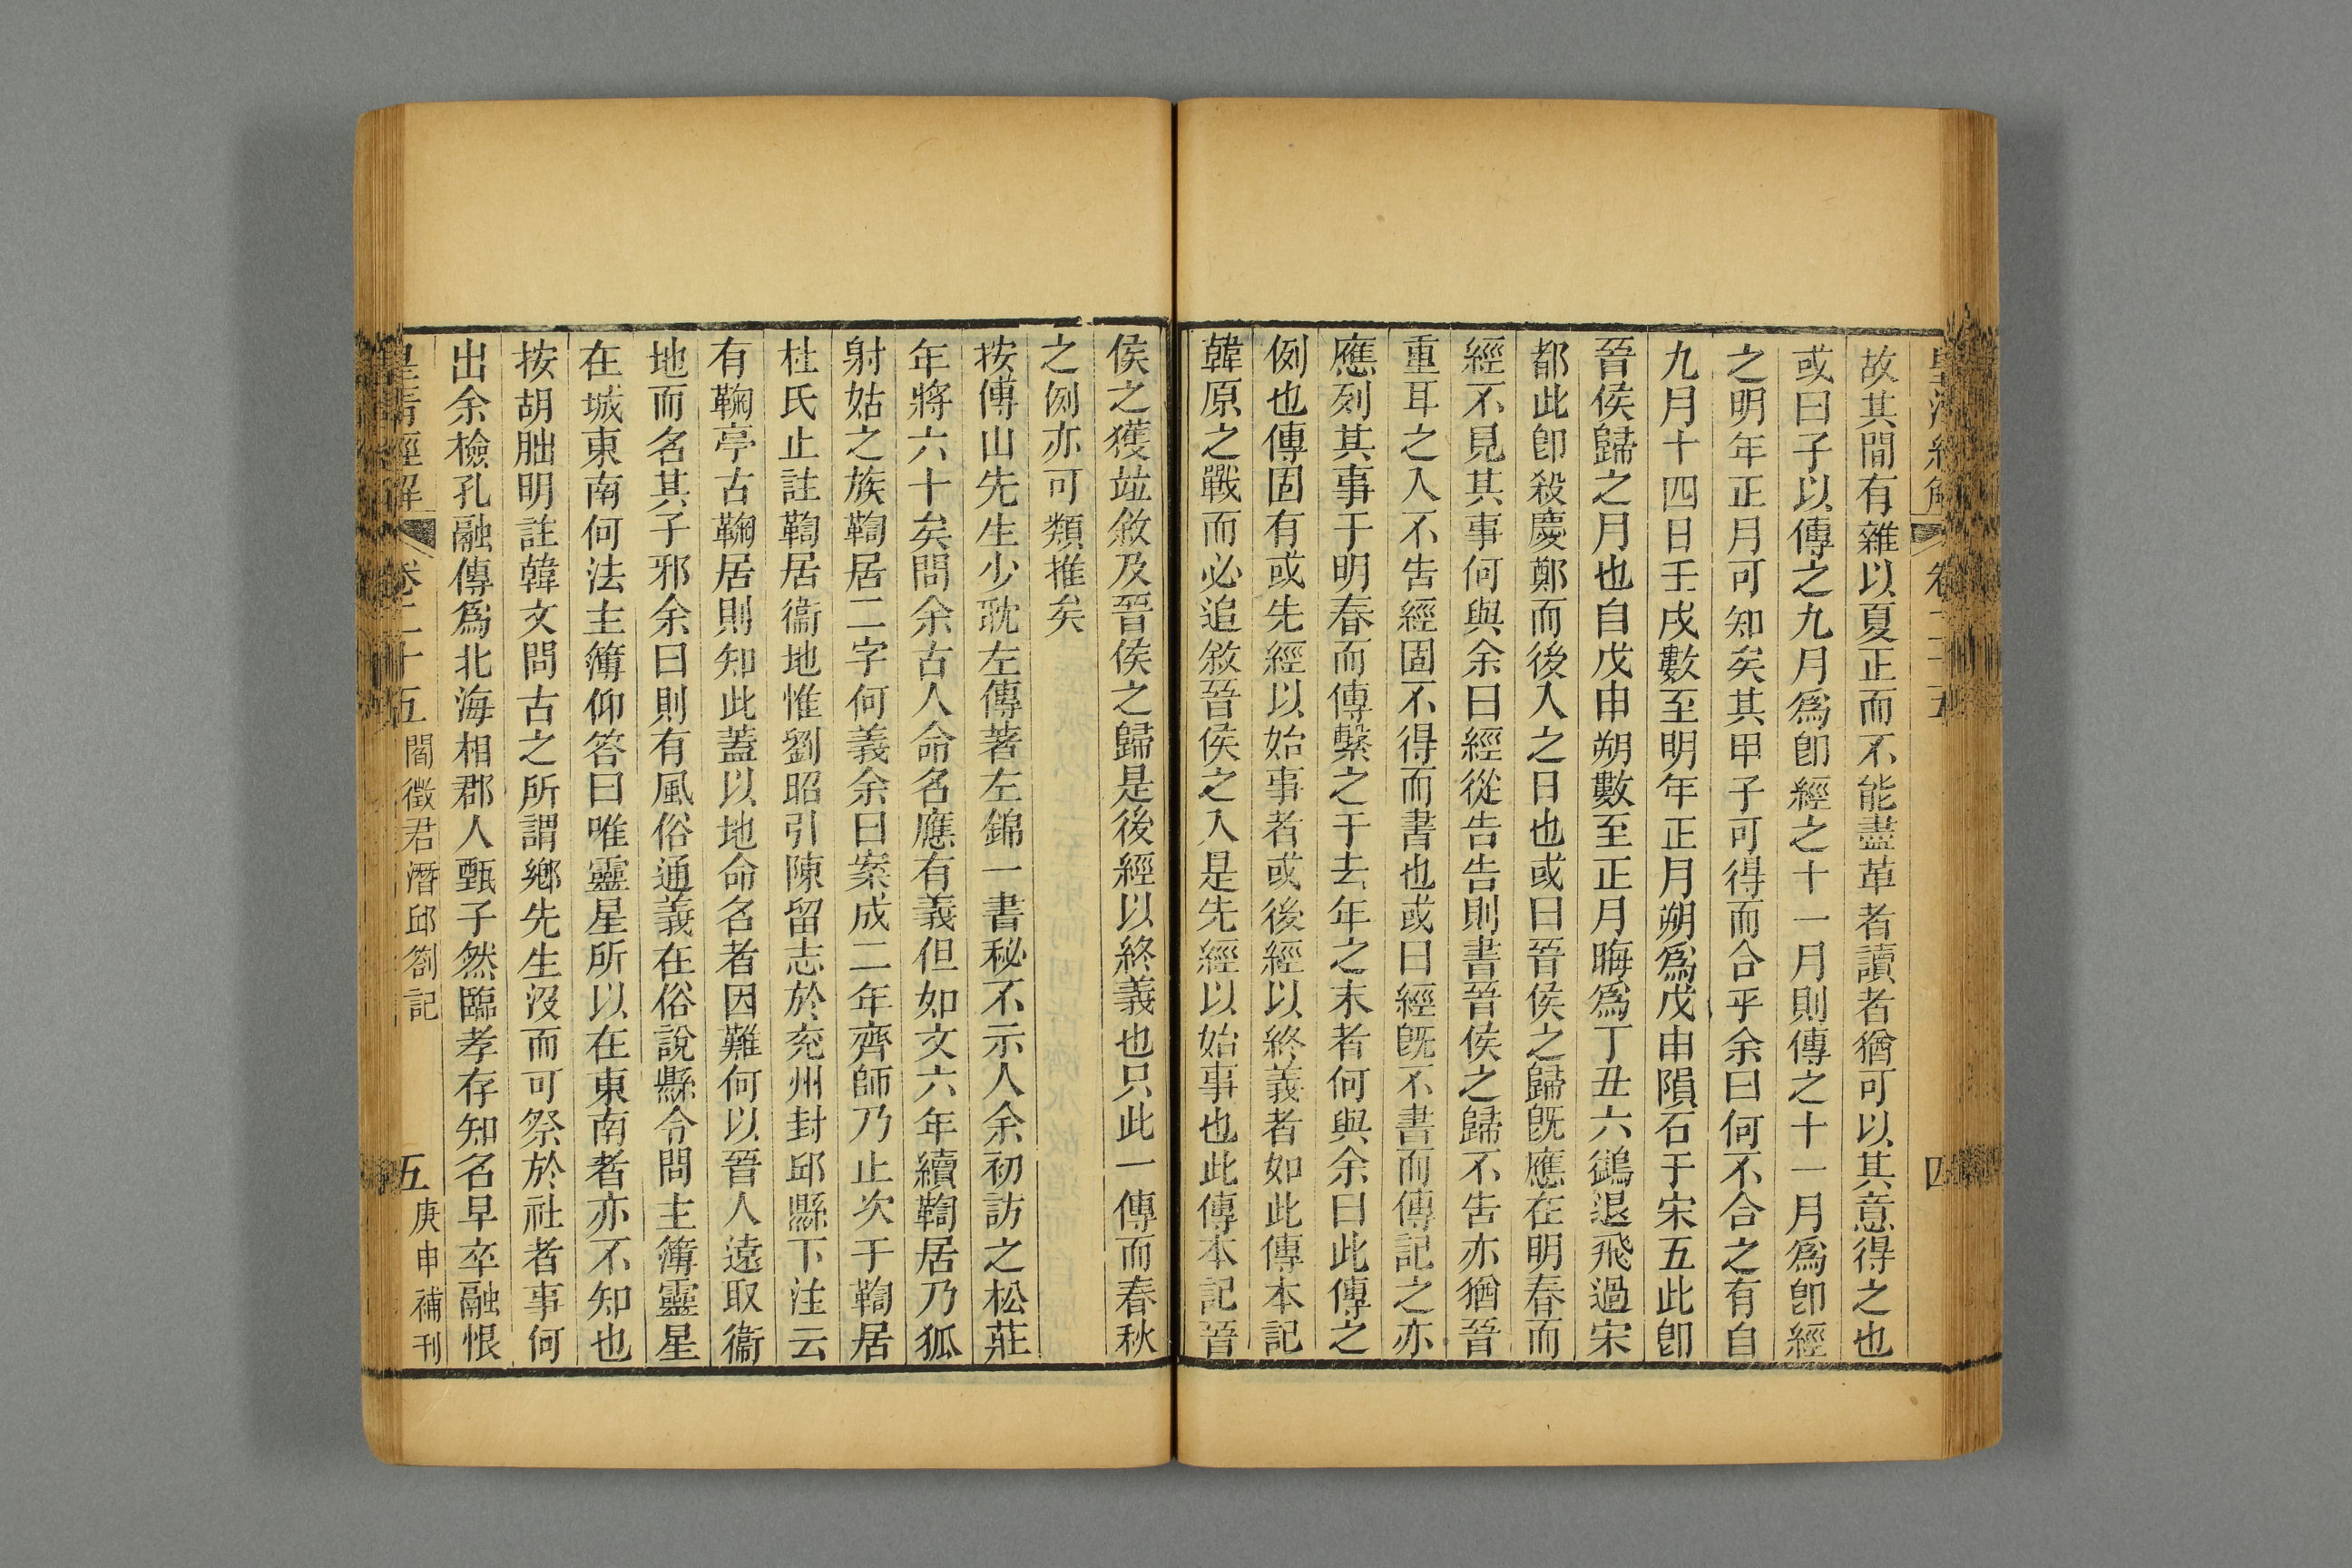 故其間有雜以夏正而不能盡革者讀者猶可以其意得之也
或曰子以傳之九月爲卽經之十一月則傳之十一月爲卽經
之明年正月可知矣其甲子可得而合乎余曰何不合之有自
九月十四日壬戌數至明年正月朔爲戊申隕石于宋五此卽
晉侯歸之月也自戊申朔數至正月晦爲丁丑六鷁退飛過宋
都此卽殺慶鄭而後入之日也或曰晉侯之歸旣應在明春而
經不見其事何與余曰經從告告則書晉侯之歸不告亦猶晉
重耳之入不告經固不得而書也或曰經旣不書而傳記之亦
應列其事于明春而傳繫之于去年之末者何與余曰此傳之
例也傳固有或先經以始事者或後經以終義者如此傳本記
韓原之戰而必追敘晉侯之入是先經以始事也此傳本記晉
侯之獲竝敘及晉侯之歸是後經以終義也只此一傳而春秋
之例亦可類推矣
按傅山先生少耽左傳著左錦一書秘不示人余初訪之松莊
年將六十矣問余古人命名應有義但如文六年續鞫居乃狐
射姑之族鞫居二字何義余曰案成二年齊師乃止次于鞫居
杜氏止註鞫居衞地惟劉昭引陳留志於兖州封邱縣下注云
有鞠亭古鞠居則知此蓋以地命名者因難何以晉人遠取衞
地而名其子邪余曰則有風俗通義在俗說縣令問主簿靈星
在城東南何法主簿仰答曰唯靈星所以在東南者亦不知也
按胡朏明註韓文問古之所謂鄕先生沒而可祭於社者事何
出余檢孔融傳爲北海相郡人甄子然臨孝存知名早卒融恨
皇淸經解 卷二十五 閻徵君潛邱劄記 五 庚申補刊